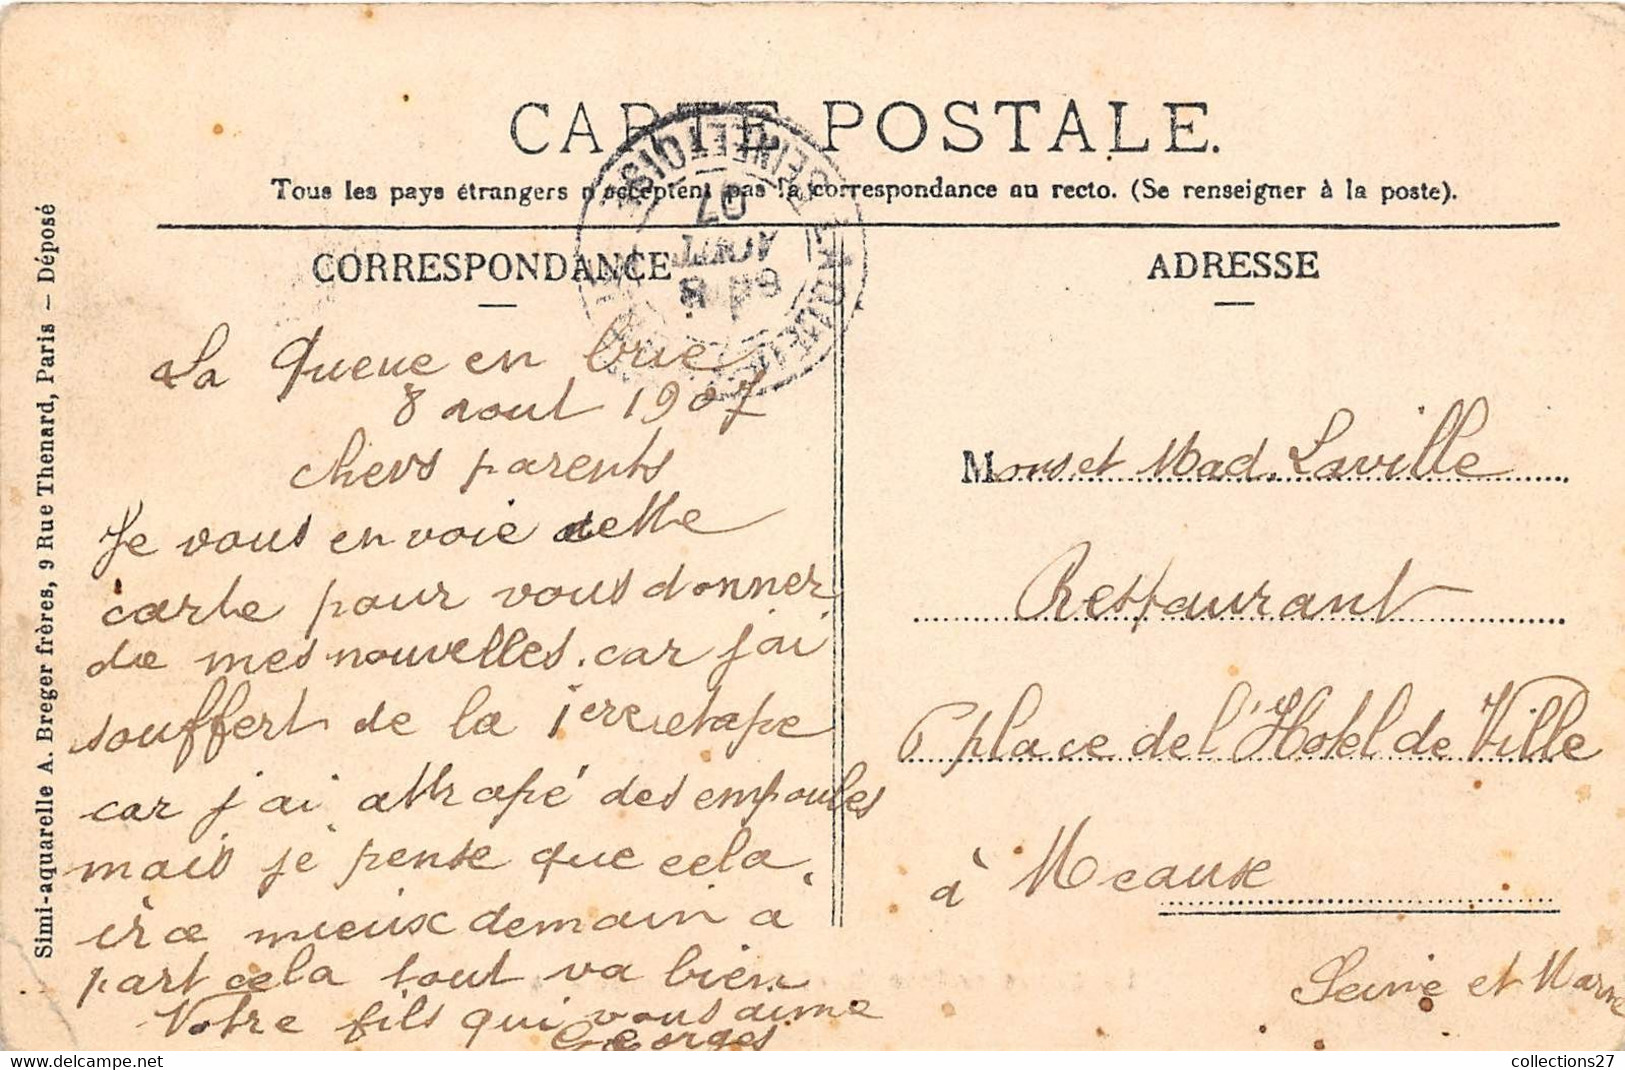 CARTE POSTALE.
Tous les pays étrangers n'acceptent pas la correspondance au recto. (Se renseigner à la poste).
Simi-aquarelle A. Breger frères, 9 Rue Thenard, Paris – Déposé
CORRESPONDANCE
La Queue en brie
8 aout 1907
chers parents
Je vous envoie cette
carte pour vous donner
de mes nouvelles. car j'ai
souffert de la 1ere etape
car j'ai attrapé des empoules
mais je pense que cela
ira mieux demain a
part cela tout va bien
Votre fils qui vous aime
Georges
LA QUEUE
SEINE ET OISE
8
AOUT
07
ADRESSE
Mons et Mad. Laville
Restaurant
place de l'Hotel de Ville
à Meaux
Seine et Marne
collections27